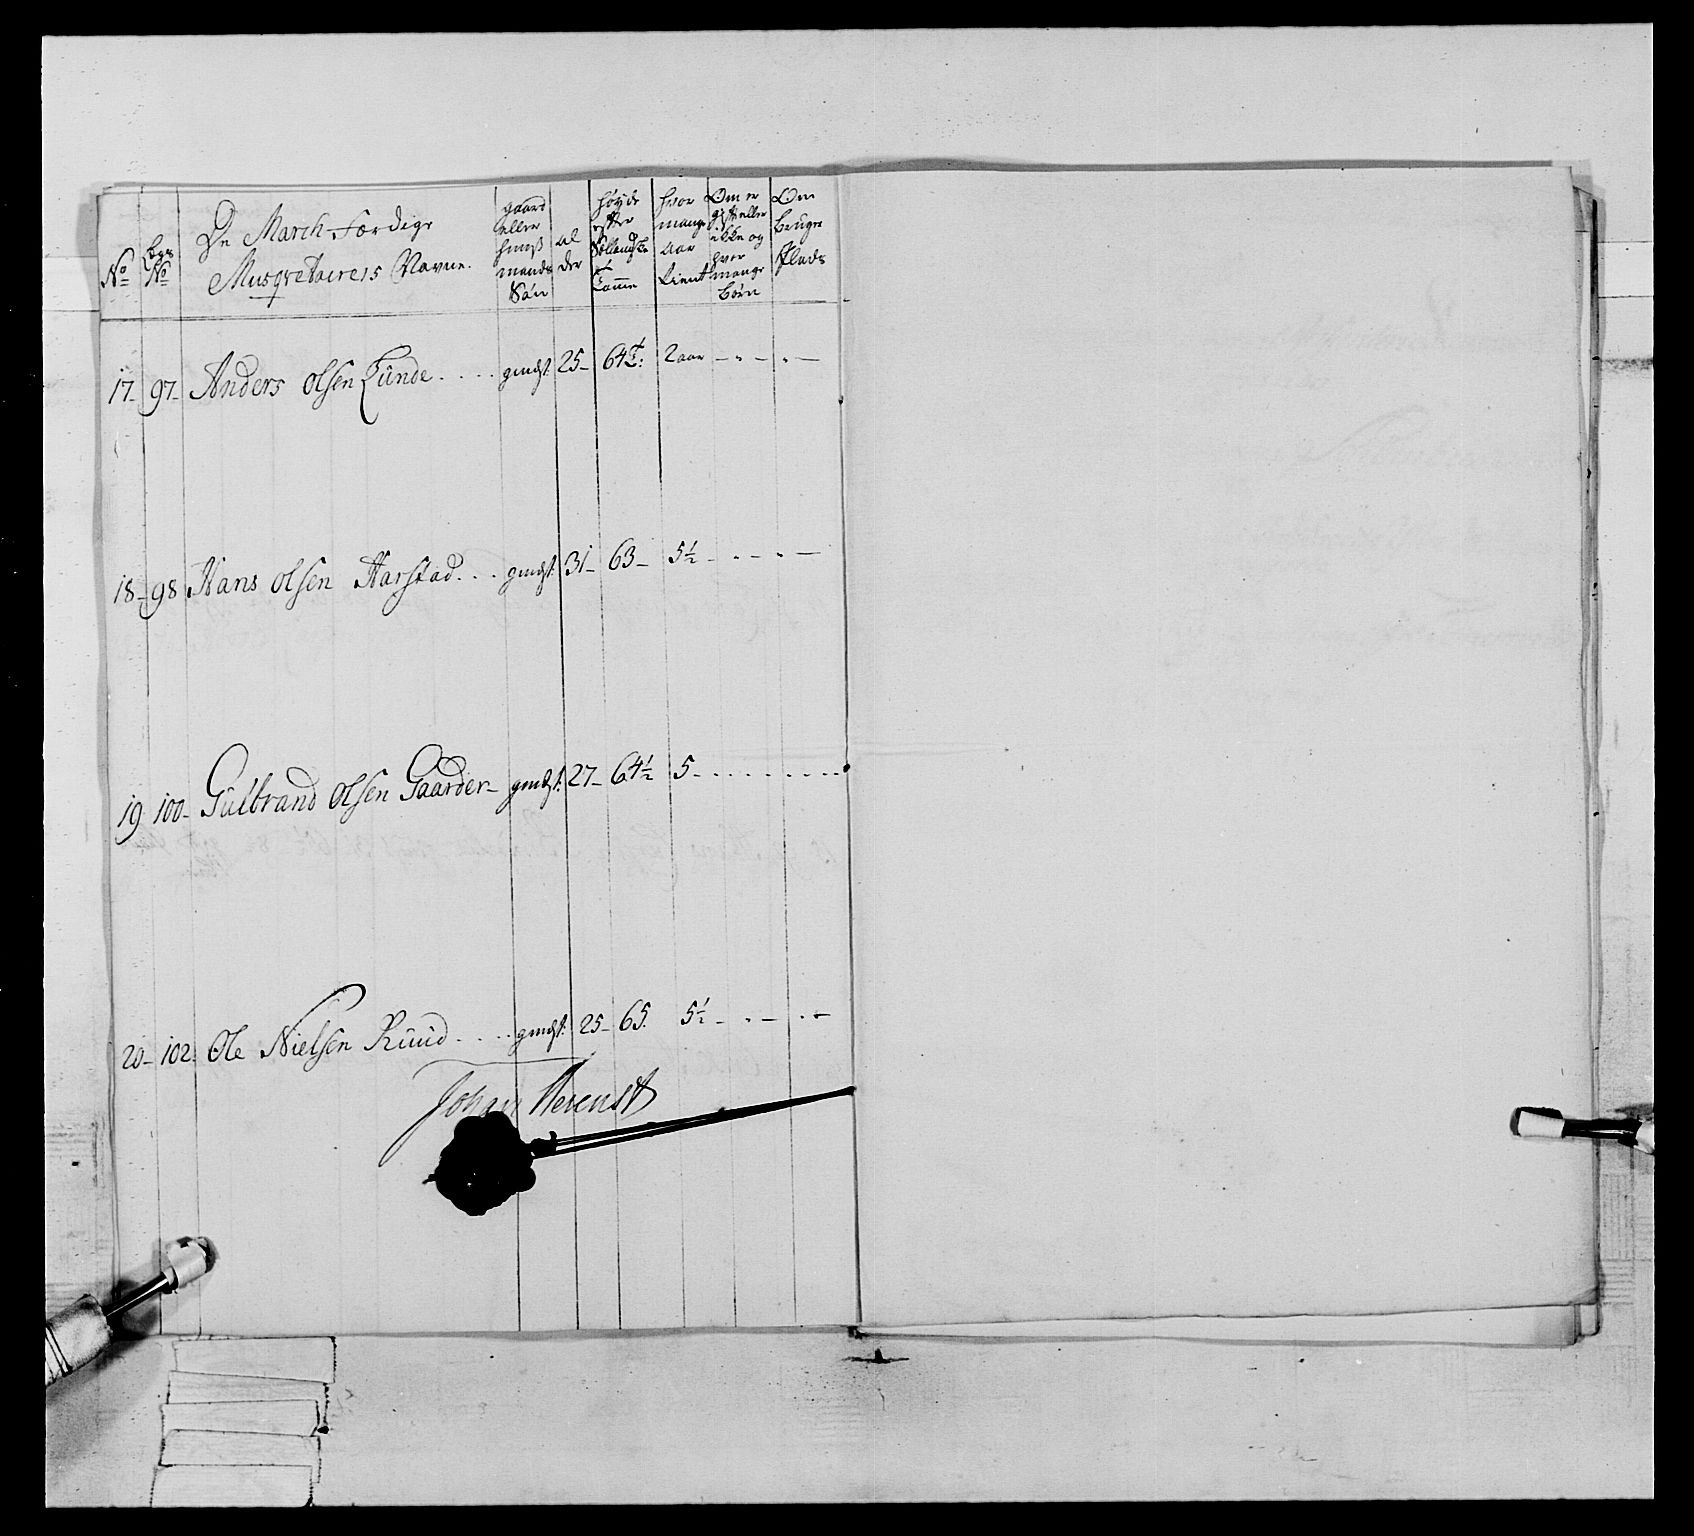 No
Legs No
De March-Færdige
Musqvetairers Navne.
gaard
eller
huuß
mands
Søn
al
der
høyde
efter
Sollandske
Tomme
hvor
mange
aar
tient
Om er
gift eller
ikke og
hvor
mange
børn
Om
bruger
Plads
17- 97- Anders Olsen Lunde . . . . gmdst. 25- 64 T: 2 aar - . - . -
18- 98 Hans Olsen Harstad . . . gmdst. 31- 63- 5½ - . - . -
19 100- Gulbrand Olsen Gaarder- gmdst. 27- 64½ 5 - . . . . . . . .
20- 102. Ole Nielsen Ruud . . . . gmdst. 25- 65. 5½ - . - . -
Johan